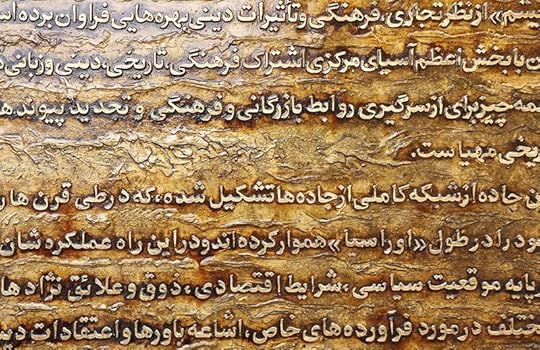 از نظر تجاری، فرهنگی و تأثیرات دینی بهره‌هایی فراوان برده
با بخش اعظم آسیای مرکزی اشتراک فرهنگی، تاریخی، دینی و زبانی
چیز برای از سرگیری روابط بازرگانی و فرهنگی و تجدید پیوندها
مهیاست.
جاده از شبکه کاملی از جاده‌ها تشکیل شده، که در طی قرن ها
را در طول «اوراسیا» هموار کرده اند و در این راه عملکرد شان
پایه موقعیت سیاسی، شرایط اقتصادی، ذوق و علائق نژادها
در مورد فرآورده‌های خاص، اشاعه باورها و اعتقادات